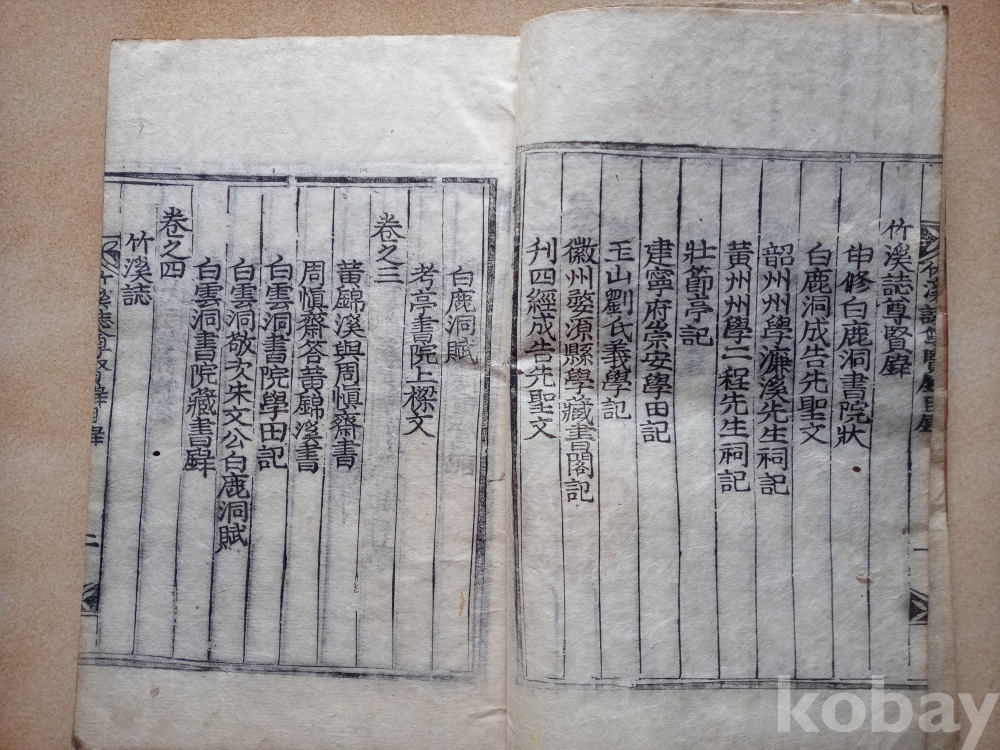 竹溪誌尊賢錄
申修白鹿洞書院狀
白鹿洞成告先聖文
韶州州學濂溪先生祠記
黃州州學二程先生祠記
壯節亭記
建寧府崇安學田記
玉山劉氏義學記
徽州婺源縣學藏書閣記
刊四經成告先聖文
白鹿洞賦
考亭書院上樑文
卷之三
黃錦溪與周愼齋書
周愼齋答黃錦溪書
白雲洞書院學田記
白雲洞敬次朱文公白鹿洞賦
白雲洞書院藏書錄
卷之四
竹溪誌
竹溪誌尊賢錄目錄 二
kobay